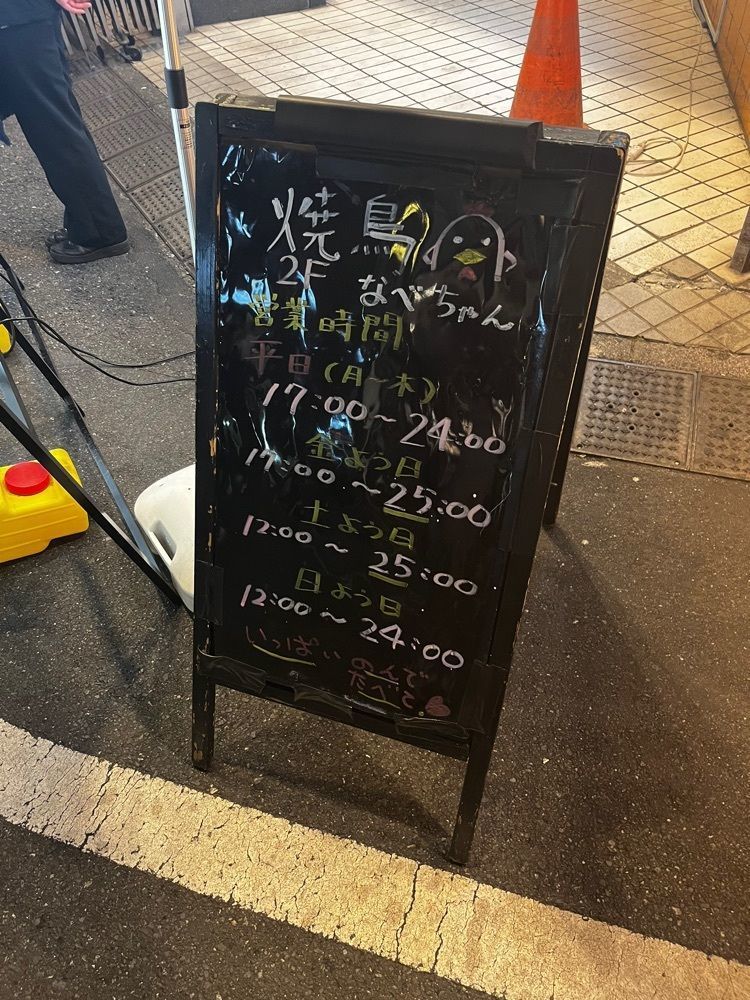 焼鳥
2F なべちゃん
営業時間
平日(月~木)
17:00~24:00
金よう日
17:00~25:00
土よう日
12:00~25:00
日よう日
12:00~24:00
いっぱい のんで
たべて